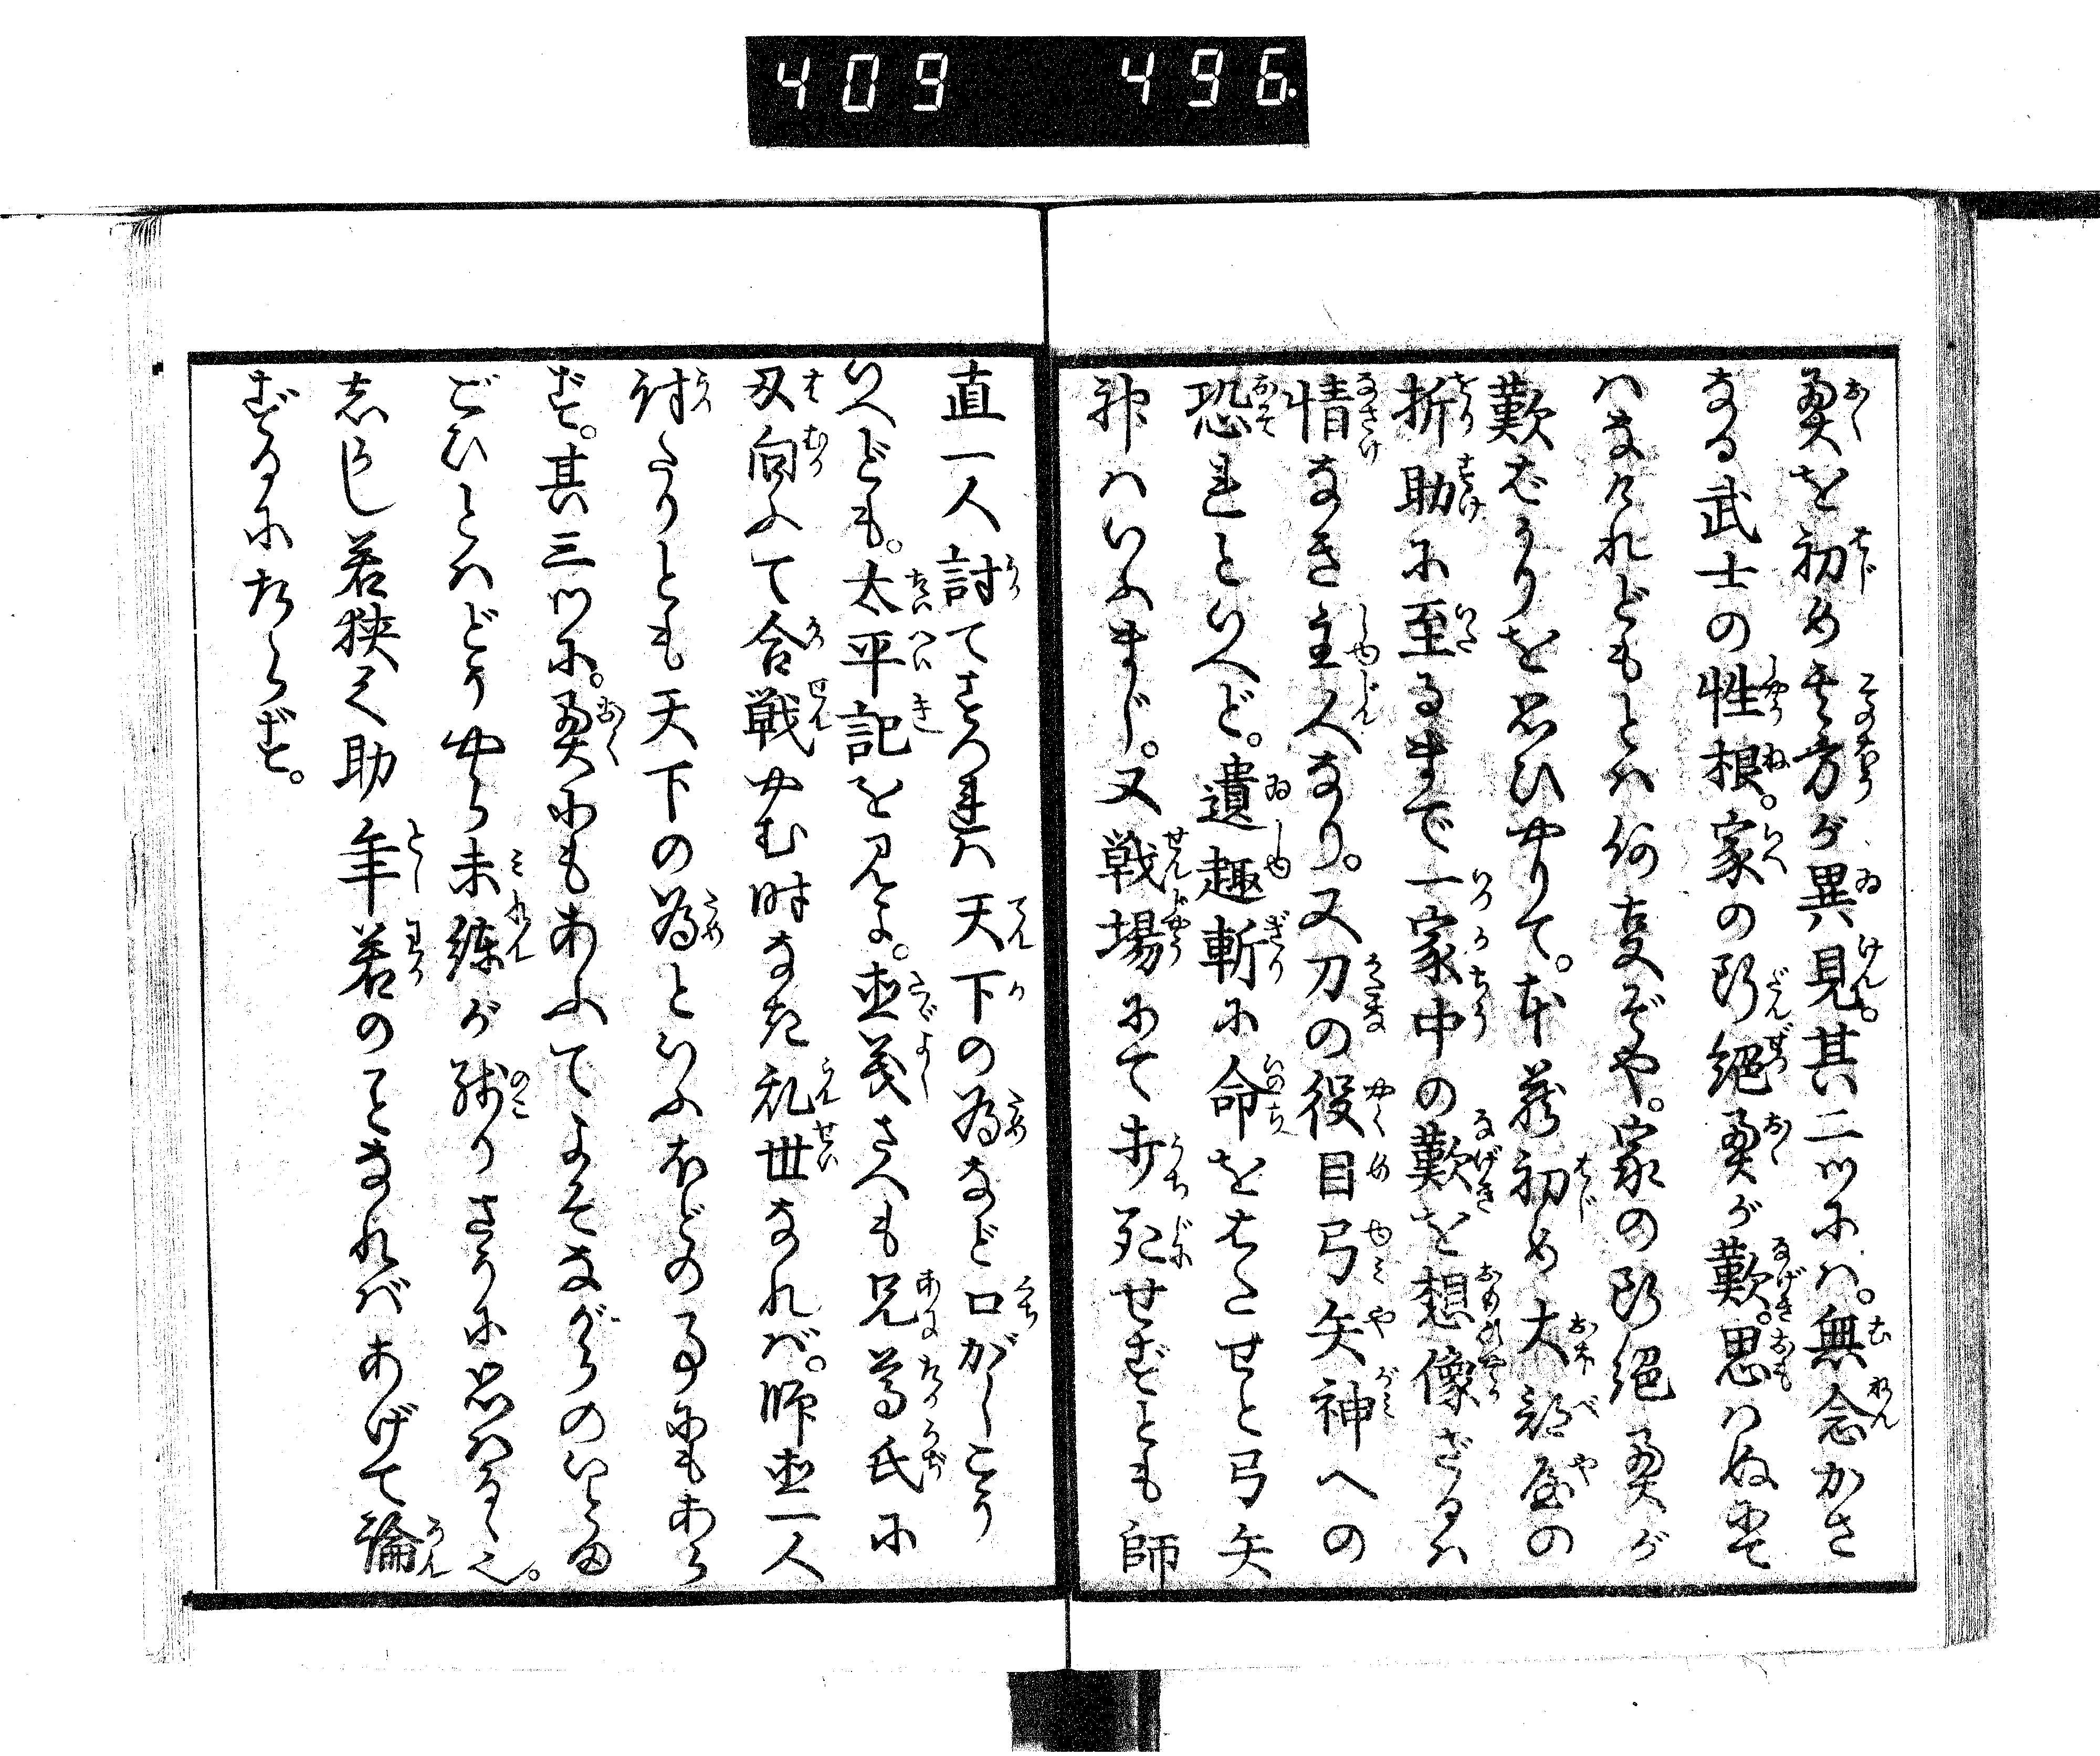 409 496.
奥を初め其方が異見。其二ツには。無念かさ
なる武士の性根。家の断絶奥が歎。思はぬにて
はなけれどもとは何事ぞや。家の断絶奥が
歎ばかりを思ひやりて。本蔵初め大部屋の
折助に至るまで一家中の歎を想像ざるは
情なき主人なり。又刀の役目弓矢神への
恐れといへど。遺趣斬に命をはたせと弓矢
神はいふまじ。又戦場にて討死せずとも師
直一人討てすつれば天下の為など口がしこう
いへども。太平記を見よ。直義さへも兄尊氏に
刃向ふて合戦やむ時なき乱世なれば。師直一人
討たりとも天下の為といふほどの事にもあら
ず。其三ツに。奥にもあふてよそながらのいとま
ごひとはどうやら未練が残りさうに思はるゝ也。
志かし若狭之助年若のことなればあげて論
ずるにたらず。